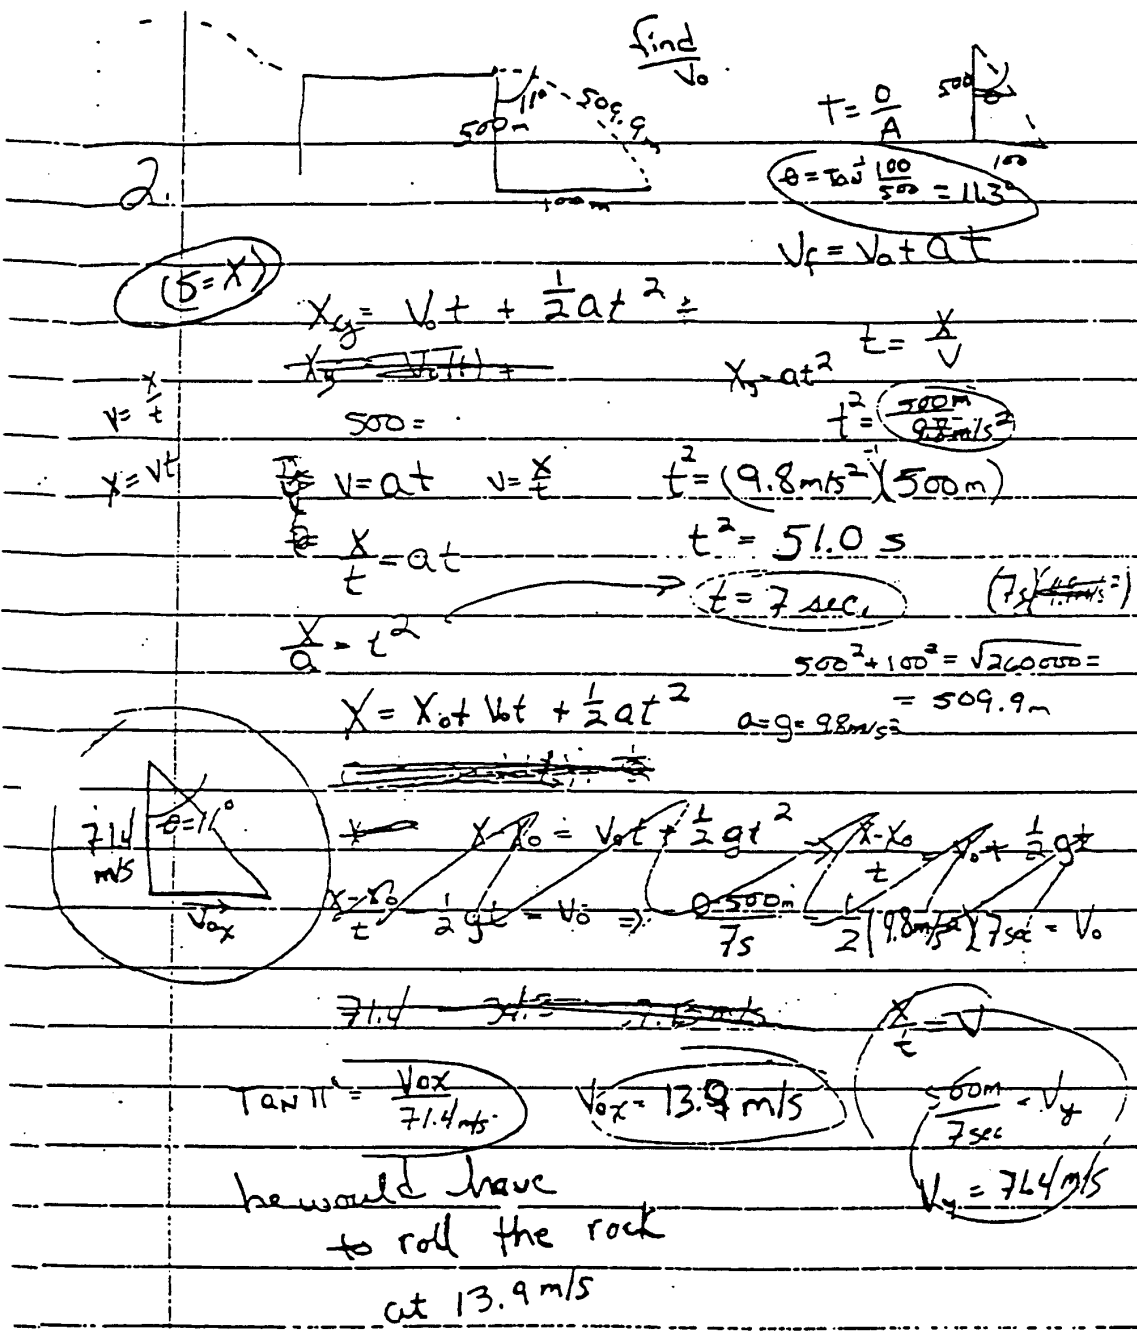 find
V₀
11°
509.9m
500m
100m
T = O/A
500
θ
100
θ = Tan⁻¹ 100/500 = 11.3°
2.
V_f = V₀ + at
(5 = X)
X_y = V₀t + ½at² =
t = X/V
X_y = at²
v = x/t
500 =
t² = 500m/9.8m/s²
x = vt
v = at
v = x/t
t² = (9.8m/s²)⁻¹(500m)
X/t = at
t² = 51.0 s
t = 7 sec.
(7s)
X/a = t²
500² + 100² = √260000 =
= 509.9m
X = X₀ + V₀t + ½at²
a = g = 9.8m/s²
71.4 m/s
θ = 11°
V₀x
X - X₀ = V₀t + ½gt² → X-X₀/t = V₀ + ½gt
X-X₀/t - ½gt = V₀ ⇒ 0-500m/7s = ½(9.8m/s²)(7sec = V₀
71.4
X/t = V
Tan 11° = V₀x/71.4 m/s
V₀x = 13.9 m/s
500m/7sec = V_y
V_y = 71.4 m/s
he would have
to roll the rock
at 13.9 m/s